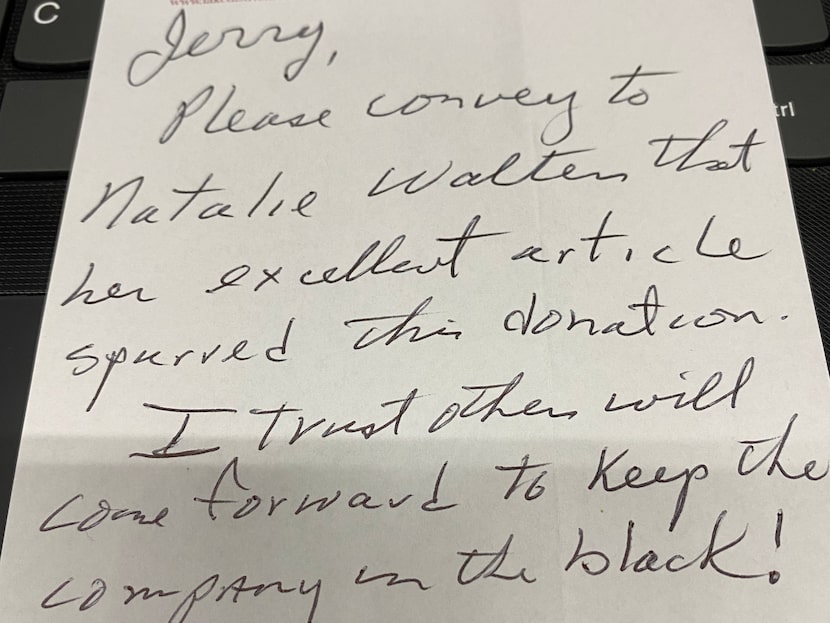 Jerry,
Please convey to
Natalie Walten that
her excellent article
spurred this donation.
I trust others will
come forward to keep the
company in the black!
C
trl